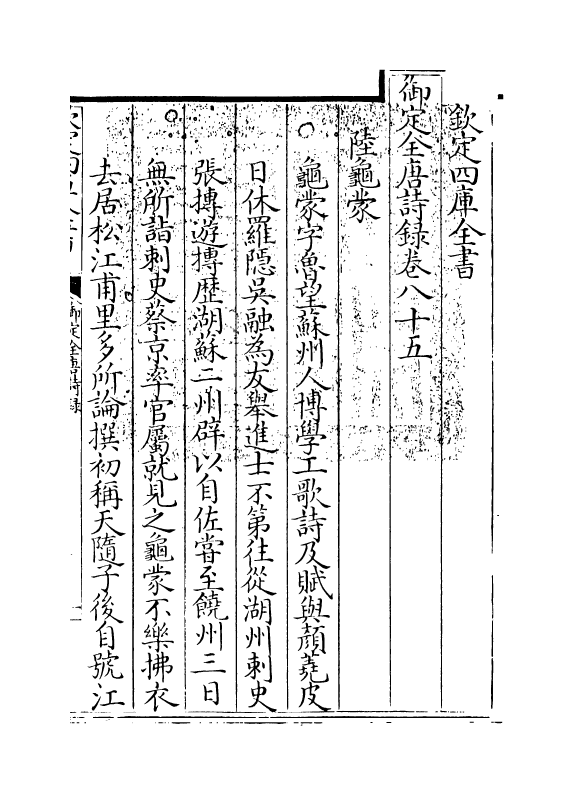 欽定四庫全書
御定全唐詩録卷八十五
陸龜蒙
龜蒙字魯望蘇州人博學工歌詩及賦與顔蕘皮
日休羅隱吳融為友舉進士不第往從湖州刺史
張摶遊摶歴湖蘇二州辟以自佐嘗至饒州三日
無所詣刺史蔡京率官屬就見之龜蒙不樂拂衣
去居松江甫里多所論撰初稱天隨子後自號江
欽定四庫全書
御定全唐詩録
一